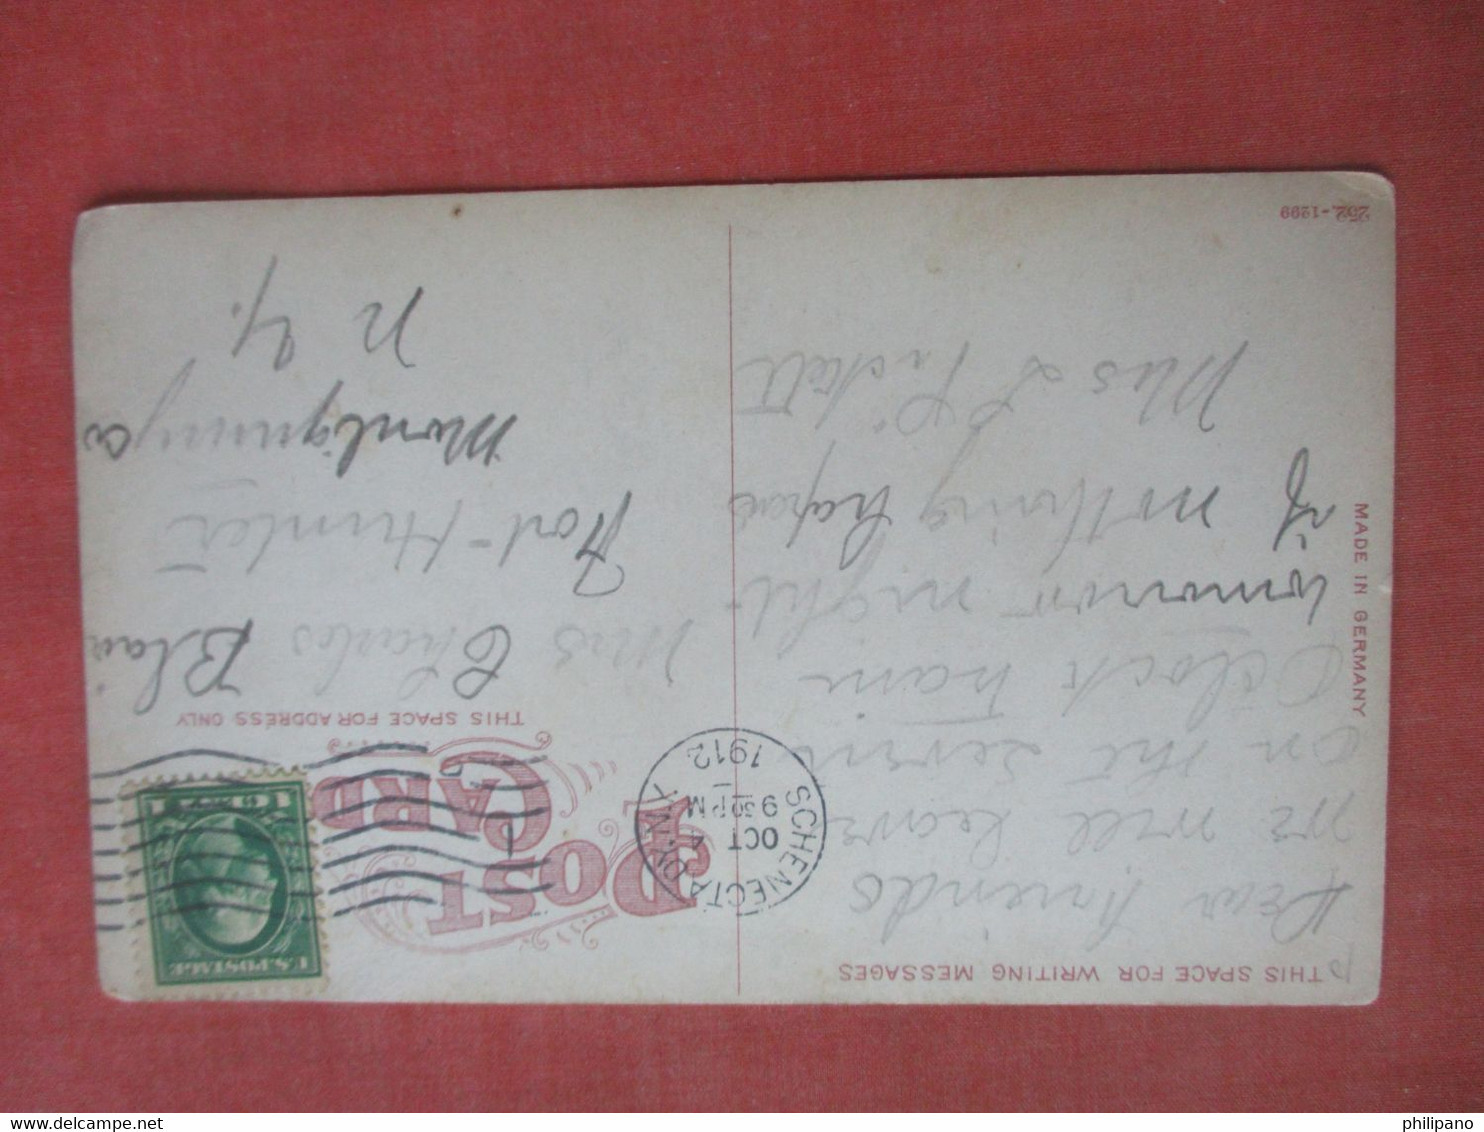 THIS SPACE FOR WRITING MESSAGES
Dear Friends
we will leave
on the seven
Oclock train
tomorrow night
if nothing hapens
Mrs L
MADE IN GERMANY
252-1299
POST
CARD
SCHENECTADY, N.Y.
OCT 4
9 30 PM
1912
U.S. POSTAGE
1 CENT 1
THIS SPACE FOR ADDRESS ONLY
Mrs Charles Blair
Fort Hunter
Montgomery Co
N Y.
delcampe.net
philipano